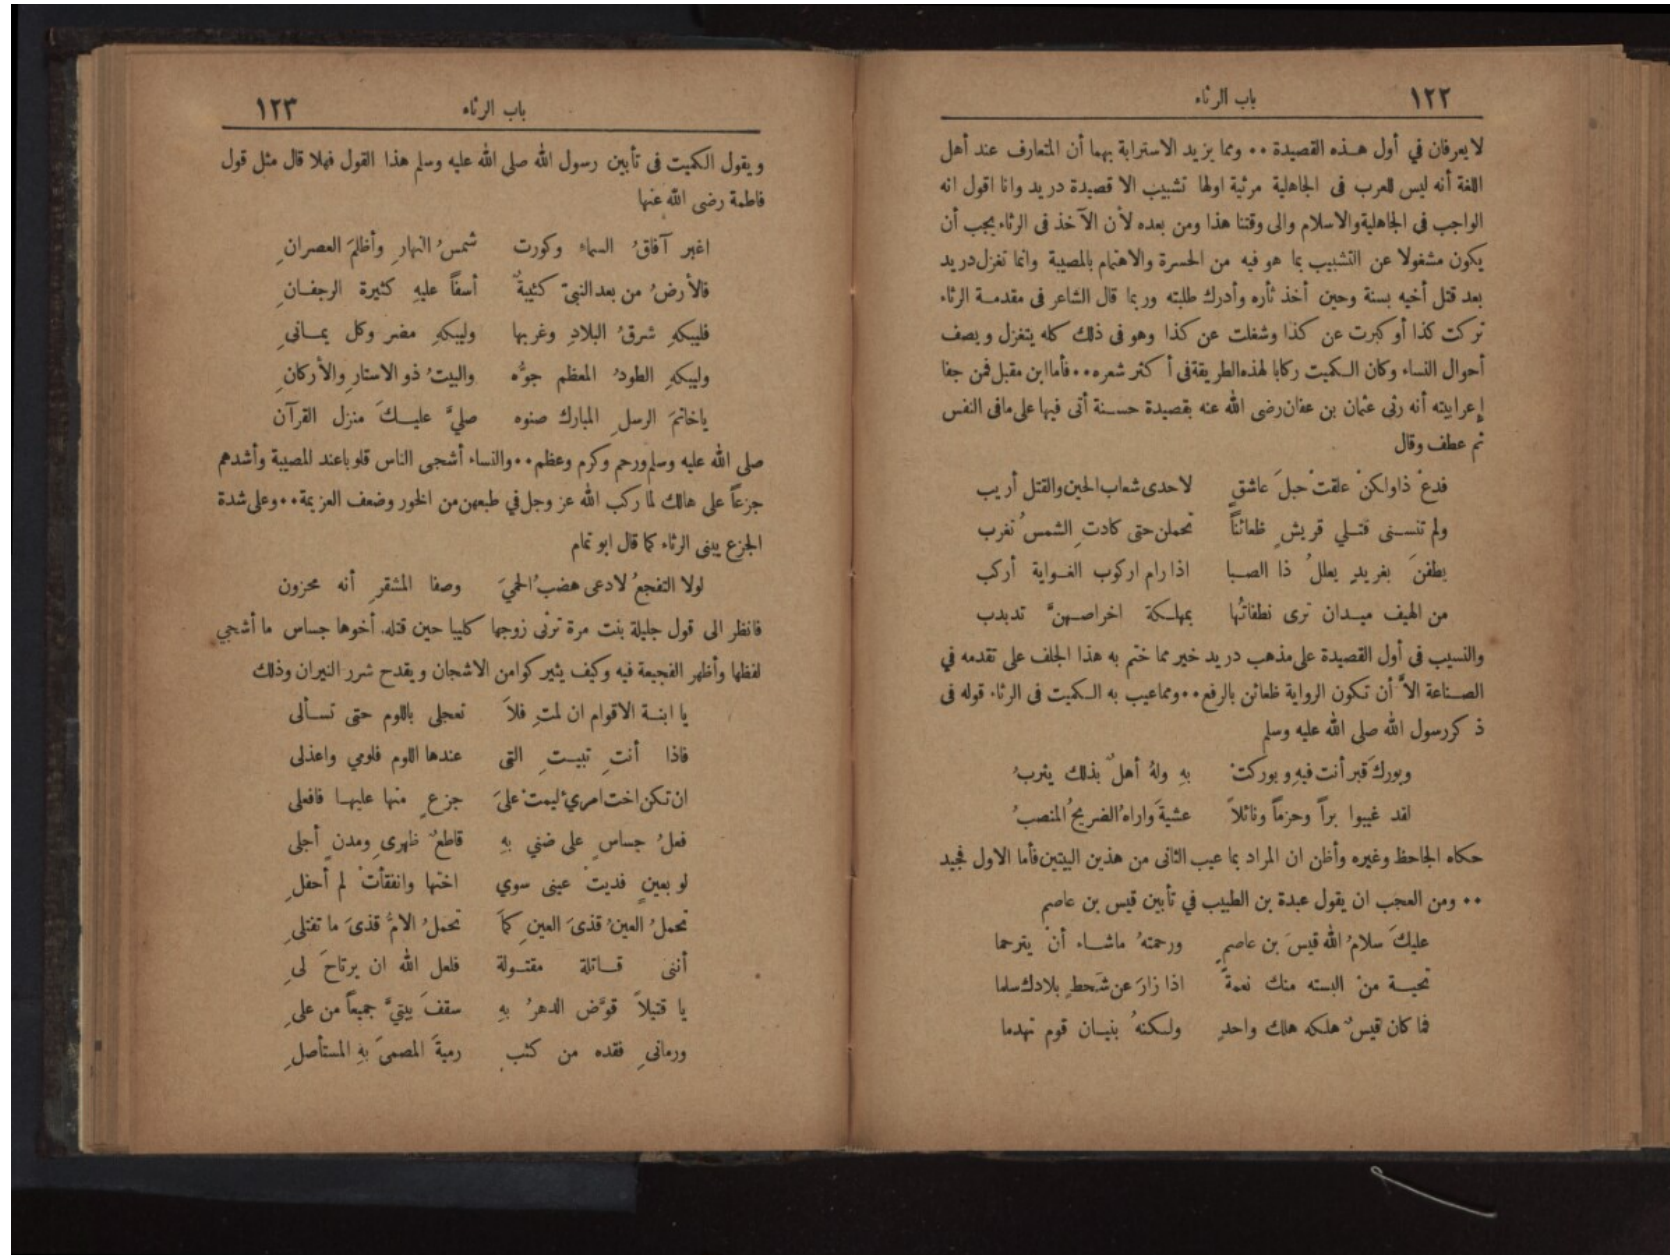 ١٢٢ باب الرثاء
لا يعرفان في أول هذه القصيدة ٠٠ ومما يزيد الاسترابة بهما أن المتعارف عند أهل
اللغة أنه ليس للعرب فى الجاهلية مرثية اولها تشبيب الا قصيدة دريد وانا اقول انه
الواجب فى الجاهلية والاسلام والى وقتنا هذا ومن بعده لأن الآخذ فى الرثاء يجب أن
يكون مشغولا عن التشبيب بما هو فيه من الحسرة والاهتمام بالمصيبة وانما تغزل دريد
بعد قتل أخيه بسنة وحين أخذ ثأره وأدرك طلبته وربما قال الشاعر فى مقدمة الرثاء
تركت كذا أو كبرت عن كذا وشغلت عن كذا وهو فى ذلك كله يتغزل ويصف
أحوال النساء وكان الكميت ركابا لهذه الطريقة فى أكثر شعره ٠٠ فأما ابن مقبل فمن جفا
إعرابيته أنه رثى عثمان بن عفان رضى الله عنه بقصيدة حسنة أتى فيها على مافى النفس
ثم عطف وقال
فدعْ ذا ولكنْ علقتْ حبلَ عاشقٍ لاحدى شعاب الحين والقتل أريب
ولم تنسنى قتلي قريشٍ ظعائناً تحملن حتى كادتِ الشمسُ تغرب
يطفنَ بغريدٍ يعللُ ذا الصبا اذا رام اركوب الغواية أركب
من الهيف ميدان ترى نطفاتُها بمهلكة اخراصهنَّ تدبدب
والنسيب فى أول القصيدة على مذهب دريد خير مما ختم به هذا الجلف على تقدمه في
الصناعة الاَّ أن تكون الرواية ظعائن بالرفع ٠٠ ومما عيب به الكميت فى الرثاء قوله فى
ذكر رسول الله صلى الله عليه وسلم
وبوركَ قبر أنت فيهِ وبوركتْ بهِ ولهُ أهلٌ بذلك يثربُ
لقد غيبوا براً وحزماً ونائلاً عشيةَ واراهُ الضريحُ المنصبُ
حكاه الجاحظ وغيره وأظن ان المراد بما عيب الثانى من هذين البيتين فأما الاول فجيد
٠٠ ومن العجب ان يقول عبدة بن الطبيب في تأبين قيس بن عاصم
عليكَ سلامُ الله قيسَ بن عاصمٍ ورحمتهُ ماشاء أنْ يترحما
تحية منْ البسته منك نعمةً اذا زارَ عن شَحطٍ بلادك سلما
فما كان قيسٌ هلكه هلك واحدٍ ولكنهُ بنيان قوم تهدما
باب الرثاء ١٢٣
ويقول الكميت فى تأبين رسول الله صلى الله عليه وسلم هذا القول فهلا قال مثل قول
فاطمة رضى الله عنها
اغبر آفاقُ السماء وكورت شمسُ النهارِ وأظلمَ العصرانِ
فالأرضُ من بعد النبىّ كئيبةٌ أسفاً عليهِ كثيرة الرجفانِ
فليبكهِ شرقُ البلادِ وغربها وليبكهِ مضر وكل يمانىِ
وليبكهِ الطودُ المعظم جوُّه والبيتُ ذو الاستارِ والأركانِ
ياخاتمَ الرسلِ المبارك صنوه صليَّ عليكَ منزل القرآن
صلى الله عليه وسلم ورحم وكرم وعظم ٠٠ والنساء أشجى الناس قلوبا عند المصيبة وأشدهم
جزعاً على هالك لما ركب الله عز وجل في طبعهن من الخور وضعف العزيمة ٠٠ وعلى شدة
الجزع يبنى الرثاء كما قال ابو تمام
لولا التفجعُ لادعى هضبُ الحميَ وصفا المشقرِ أنه محزون
فانظر الى قول جليلة بنت مرة ترثى زوجها كليبا حين قتله أخوها جساس ما أشجي
لفظها وأظهر الفجيعة فيه وكيف يثير كوامن الاشجان ويقدح شرر النيران وذلك
يا ابنة الاقوام ان لمتِ فلاَ تعجلى باللوم حتى تسألى
فاذا أنتِ تبيتِ التى عندها اللوم فلومي واعذلى
ان تكن اخت امريءٍ ليمتْ علىَ جزعٍ منها عليها فافعلى
فعلُ جساسٍ على ضني بهِ قاطعٌ ظهرىِ ومدنٍ أجلى
لو بعينٍ فديتْ عينى سوي اختها وانفقأتْ لم أحفلِ
تحملُ العينُ قذىَ العينِ كمَا تحملُ الامُّ قذىَ ما تفتلىِ
أننى قاتلة مقتولة فلعل الله ان يرتاحَ لى
يا قتيلاً قوَّض الدهرُ بهِ سقفَ بيتيَّ جميعاً من علىِ
ورمانىِ فقده من كثب رميةَ المصمىَ بهِ المستأصلِ